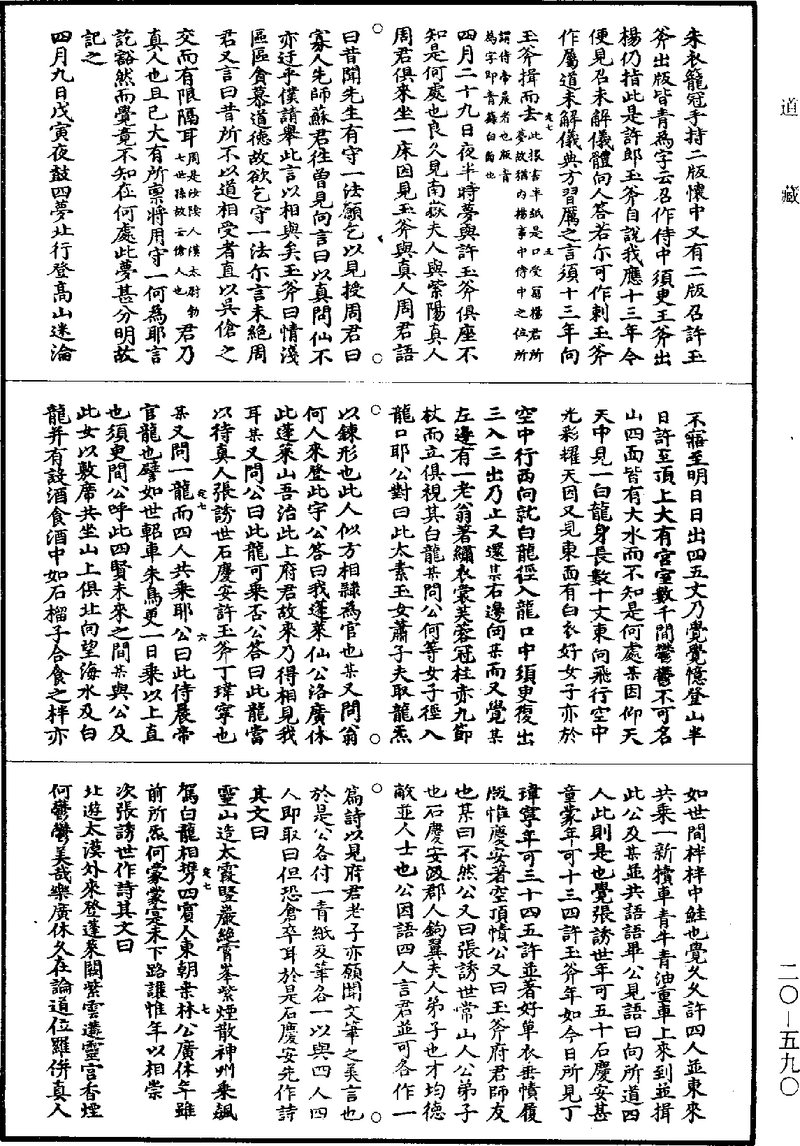 道藏
二〇—五九〇
朱衣籠冠手持二版懷中又有二版召許玉
斧出版皆青為字云召作侍中須臾玉斧出
楊仍指此是許郎玉斧自說我應十三年今
便見召未解儀體向人答若尔可作刺玉斧
作屬道未解儀典方習厲之言須十三年向
玉斧揖而去此掾書半紙是口受翁楊君所
夢故猶内楊事中侍中之位所
謂侍帝晨者也版青
為字即青籙白簡也
四月二十九日夜半時夢與許玉斧俱座不
知是何處也良久見南嶽夫人與紫陽真人
周君俱來坐一床因見玉斧與真人周君語
曰昔聞先生有守一法願乞以見授周君曰
寡人先師蘇君往曾見向言曰以真問仙不
亦迂乎僕請舉此言以相與矣玉斧曰情淺
區區貪慕道德故欲乞守一法尔言未絕周
君又言曰昔所不以道相受者直以吳傖之
交而有限隔耳周是汝陰人漢太尉勃
七世孫故云傖人也君乃
真人也且已大有所禀將用守一何為耶言
訖豁然而覺竟不知在何處此夢甚分明故
記之
四月九日戊寅夜鼓四夢北行登高山迷淪
不寤至明日日出四五丈乃覺覺憶登山半
日許至頂上大有宮室數千間鬱鬱不可名
山四面皆有大水而不知是何處某因仰天
天中見一白龍身長數十丈東向飛行空中
光彩耀天因又見東面有白衣好女子亦於
空中行西向就白龍徑入龍口中須臾復出
三入三出乃止又還某右邊向某而又覺某
左邊有一老翁著繡衣裳芙蓉冠柱赤九節
杖而立俱視其白龍某問公何等女子徑入
龍口耶公對曰此太素玉女蕭子夫取龍炁
以鍊形也此人似方相隸為官也某又問翁
何人來登此宇公答曰我蓬萊仙公洛廣休
此蓬萊山吾治此上府君故來乃得相見我
耳某又問公曰此龍可乘否公答曰此龍當
以待真人張誘世石慶安許玉斧丁瑋寧也
某又問一龍而四人共乘耶公曰此侍晨帝
官龍也譬如世軺車朱鳥更一日乘以上直
也須臾間公呼此四賢未來之間某與公及
此女以敷席共坐山上俱北向望海水及白
龍并有設酒食酒中如石榴子合食之柈亦
如世間柈柈中鮭也覺久久許四人並東來
共乘一新犢車青牛青油重車上來到並揖
此公及某並共語語畢公見語曰向所道四
人此則是也覺張誘世年可五十石慶安甚
童蒙年可十三四許玉斧年如今日所見丁
瑋寧年可三十四五許並著好單衣垂幘履
版惟慶安著空頂幘公又曰玉斧府君師友
也某曰不然公又曰張誘世常山人公弟子
也石慶安汲郡人鉤翼夫人弟子也才均德
敵並人士也公因語四人言君並可各作一
篇詩以見府君老子亦願聞文筆之美言也
於是公各付一青紙及筆各一以與四人四
人即取曰但恐倉卒耳於是石慶安先作詩
其文曰
靈山造太霞豎巖絕霄峯紫煙散神州乘飊
駕白龍相㩦四賓人東朝桒林公廣休年雖
前所炁何蒙蒙寔未下路讓惟年以相崇
次張誘世作詩其文曰
北遊太漠外來登蓬萊闕紫雲遘靈宮香煙
何鬱鬱美哉樂廣休久在論道位羅併真人